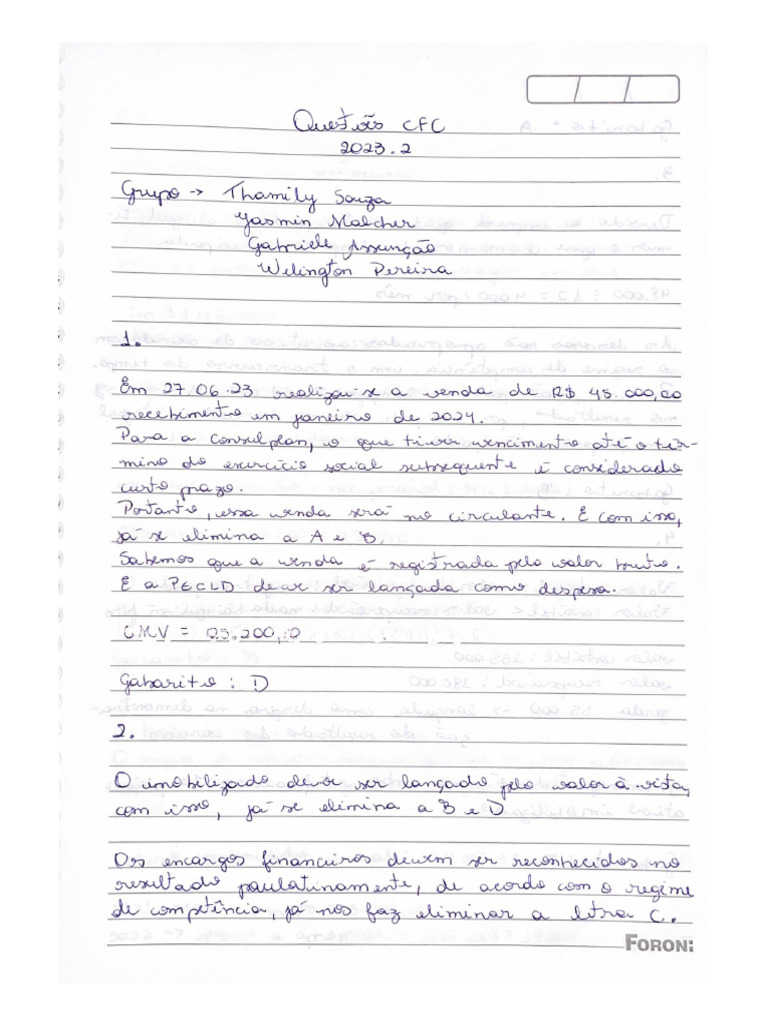 Questões CFC
2023.2
Grupo → Thamily Souza
Yasmin Malcher
Gabriele Assunção
Welington Pereira
1.
Em 27.06.23 realizou-se a venda de R$ 45.000,00
recebimento em janeiro de 2024.
Para a consulplan, o que tiver vencimento até o tér-
mino do exercício social subsequente é considerado
curto prazo.
Portanto, essa venda será no circulante. E com isso,
já se elimina a A e B.
Sabemos que a venda é registrada pelo valor bruto.
E a PECLD deve ser lançada como despesa.
CMV =
Gabarito : D
2.
O imobilizado deve ser lançado pelo valor à vista,
com isso, já se elimina a B e D
Os encargos financeiros devem ser reconhecidos no
resultado paulatinamente, de acordo com o regime
de competência, já nos faz eliminar a letra C.
FORONI